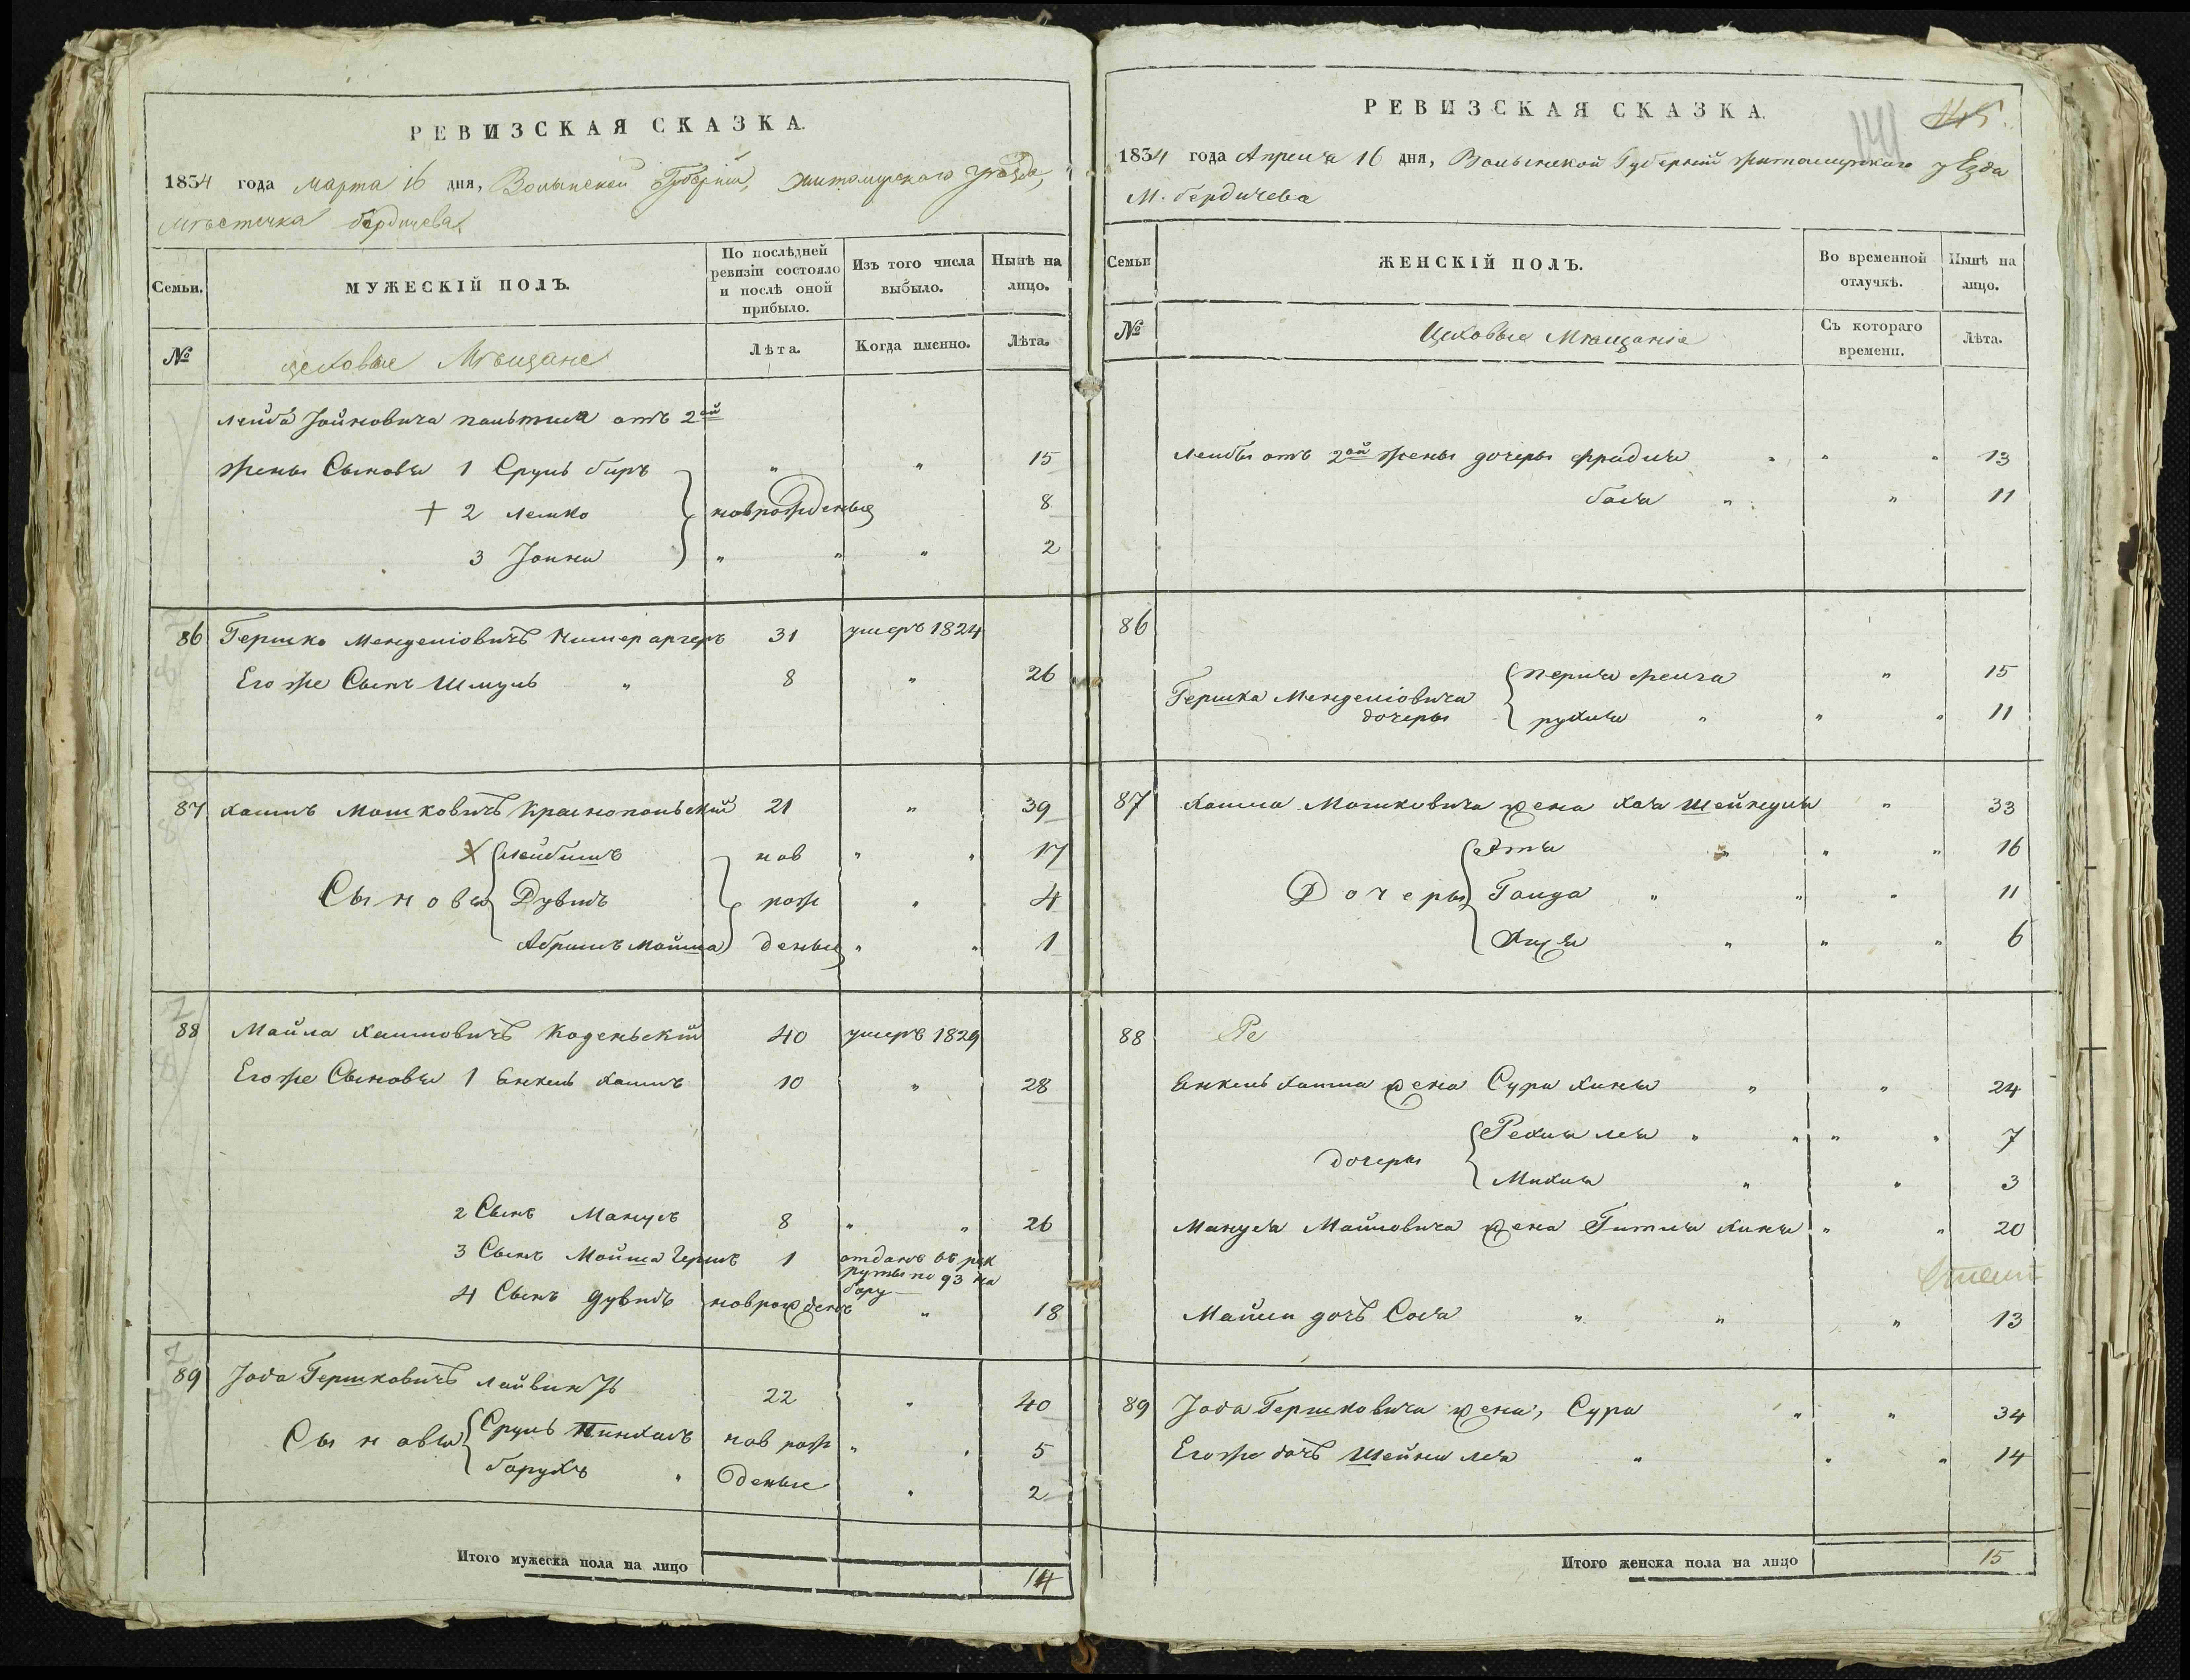 РЕВИЗСКАЯ СКАЗКА.
1834 года марта 16 дня, Волынской Губерніи, житомирскаго уѣзда,
мѣстечка бердичева,
Семьи.
МУЖЕСКІЙ ПОЛЪ.
По послѣдней ревизіи состояло и послѣ оной прибыло.
Изъ того числа выбыло.
Нынѣ на лицо.
№
цеховые Мѣщане
Лѣта.
Когда именно.
Лѣта.
Лейба Іойновича от 2ой
жены Сыновья 1 Сруль биръ " " 15
+ 2 Лейко новрожденные 8
3 Іойна " " " 2
86 Гершко Менделіовичъ 31 умеръ 1824
Его же Сынъ Шмуль " 8 " 26
87 хаимъ Мошковичъ Краснопольскій 21 " 39
Сыновья
Х Лейбишъ нов " " 17
Дувидъ рож " 4
Абрамъ Мойша денные " " 1
88 Майла Хаимовичъ Коденьскій 40 умеръ 1829
Его же Сыновья 1 Янкель хаимъ 10 " 28
2 Сынъ Манусъ 8 " " 26
3 Сынъ Мойша Гершъ 1 отданъ въ рек
руты по 93 на
бору
4 Сынъ Дувидъ новрожденъ " 18
89 Іова Гершковичъ 22 " 40
Сыновья
Сруль Пинхасъ нов рож " " 5
барухъ " денные " 2
Итого мужеска пола на лицо 14
РЕВИЗСКАЯ СКАЗКА.
141
145.
1834 года Апреля 16 дня, Волынской Губерніи житомирскаго уезда
М. бердичева
Семьи
ЖЕНСКІЙ ПОЛЪ.
Во временной отлучкѣ.
Нынѣ на лицо.
№
Цеховые Мѣщаніе
Съ котораго времени.
Лѣта.
Лейбы отъ 2ой жены дочеры фрадля " " " 13
бася " " 11
86
Гершка Менделіовича
дочеры
перля фейга " 15
рухля " " " 11
87 хаима Мошковича жена хая Шейндля " 33
Дочеры
Этя " " " 16
Голда " " " 11
" " " 6
88 Ре
Янкель хаима жена Сура хана " " 24
дочеры
Рехля лея " " " " 7
Михля " " 3
Мануса Майловича жена Гитля хана " " 20
Майли дочъ Сося " " " 13
89 Іова Гершковича жена, Сура " " 34
Его же дочъ Шейна лея " " " 14
Итого женска пола на лицо 15